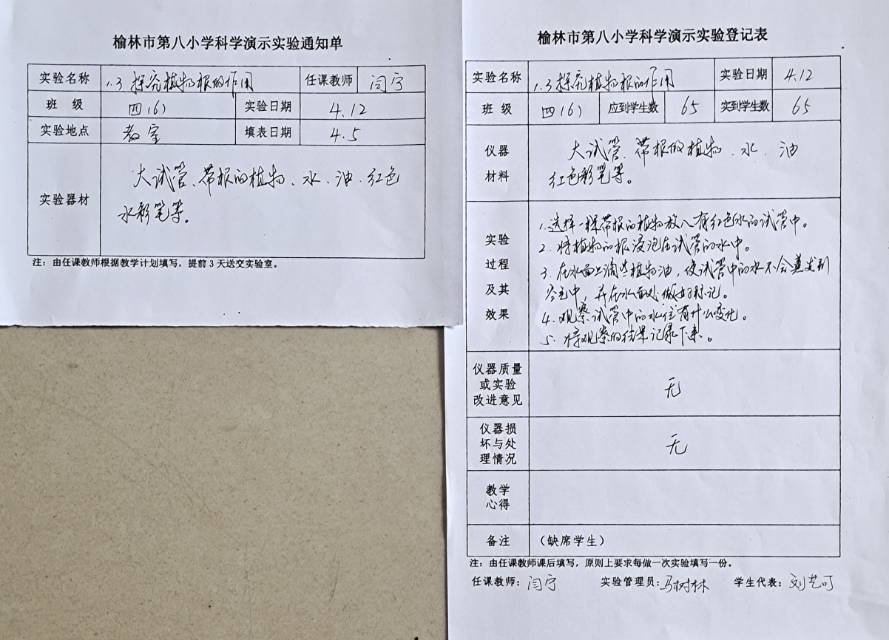 榆林市第八小学科学演示实验通知单
实验名称 1.3 探究植物根的作用 任课教师 闫宁
班 级 四(6) 实验日期 4.12
实验地点 教室 填表日期 4.5
实验器材 大试管、带根的植物、水、油、红色
水彩笔等。
注:由任课教师根据教学计划填写,提前3天送交实验室。
榆林市第八小学科学演示实验登记表
实验名称 1.3 探究植物根的作用 实验日期 4.12
班 级 四(6) 应到学生数 65 实到学生数 65
仪器
材料
大试管、带根的植物、水、油
红色彩笔等。
实验
过程
及其
效果
1.选择一棵带根的植物放入有红色水的试管中。
2.将植物的根浸泡在试管的水中。
3.在水面上滴些植物油,使试管中的水不会蒸发到
空气中,并在水面处做好标记。
4.观察试管中的水位有什么变化。
5.将观察的结果记录下来。
仪器质量
或实验
改进意见
无
仪器损
坏与处
理情况
无
教学
心得
备注 (缺席学生)
注:由任课教师课后填写,原则上要求每做一次实验填写一份。
任课教师:闫宁 实验管理员:马树林 学生代表:刘艺可